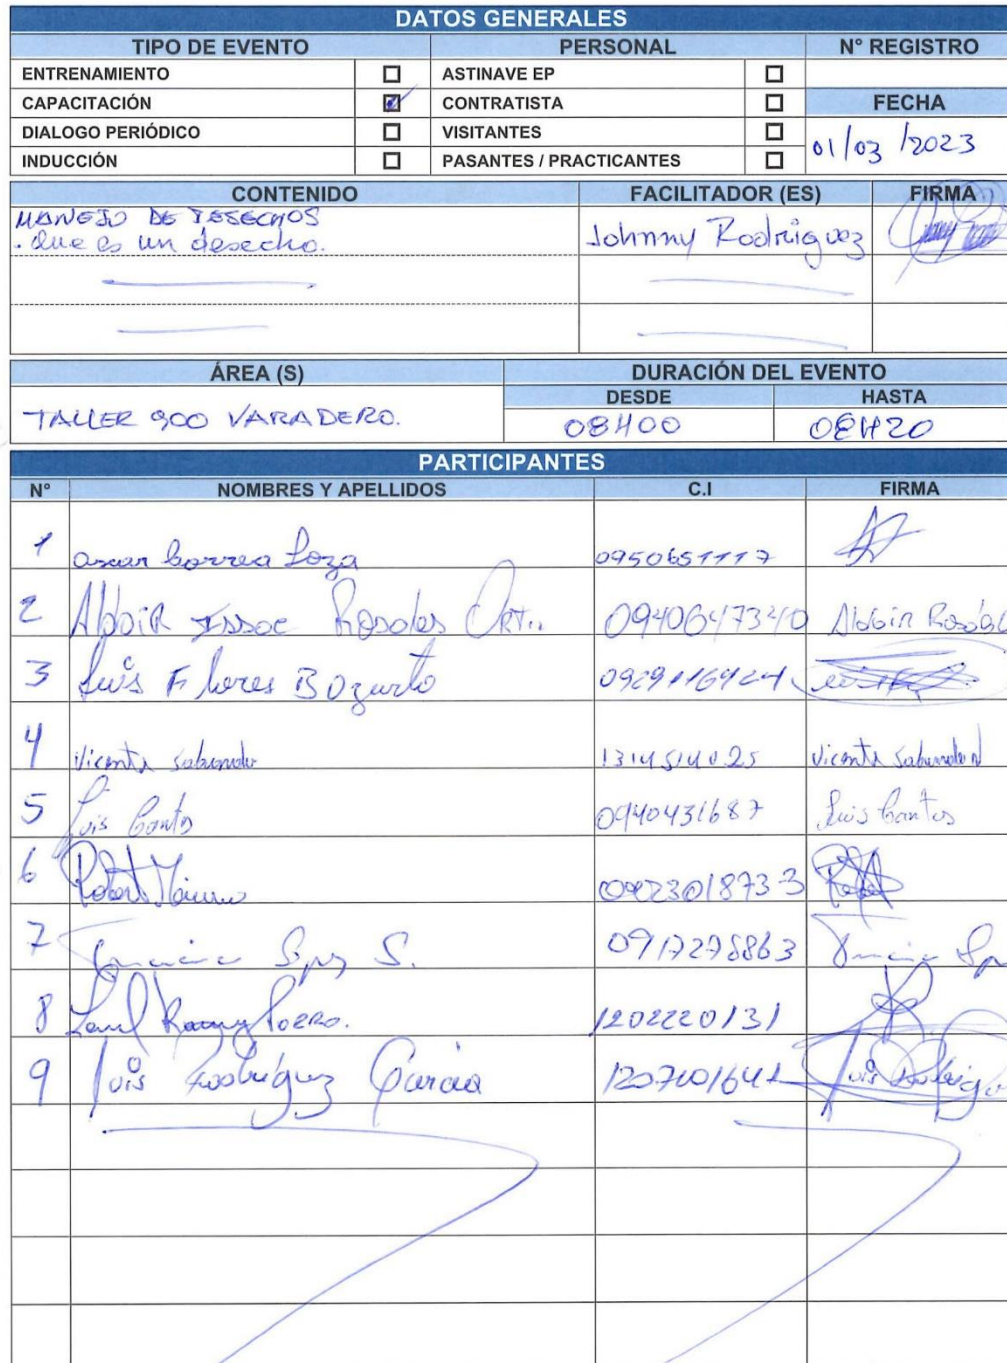 DATOS GENERALES
TIPO DE EVENTO PERSONAL N° REGISTRO
ENTRENAMIENTO ASTINAVE EP
CAPACITACIÓN CONTRATISTA FECHA
DIALOGO PERIÓDICO VISITANTES 01/03/2023
INDUCCIÓN PASANTES / PRACTICANTES
CONTENIDO FACILITADOR (ES) FIRMA
MANEJO DE DESECHOS
. Que es un desecho. Johnny Rodriguez
ÁREA (S) DURACIÓN DEL EVENTO
DESDE HASTA
TALLER 900 VARADERO. 08H00 08H20
PARTICIPANTES
N° NOMBRES Y APELLIDOS C.I FIRMA
1 oscar correa Loza 0950651117
2 Rosales 0940647340
3 Luis Flores Bozurto
4 Vicente 1314514025 Vicente
5 Luis Cantos 0940431687 Luis Cantos
6 Robert 0923018733
7 S. 0917278863
8 1202220131
9 Luis Rodríguez Garcia 1207001641 Luis